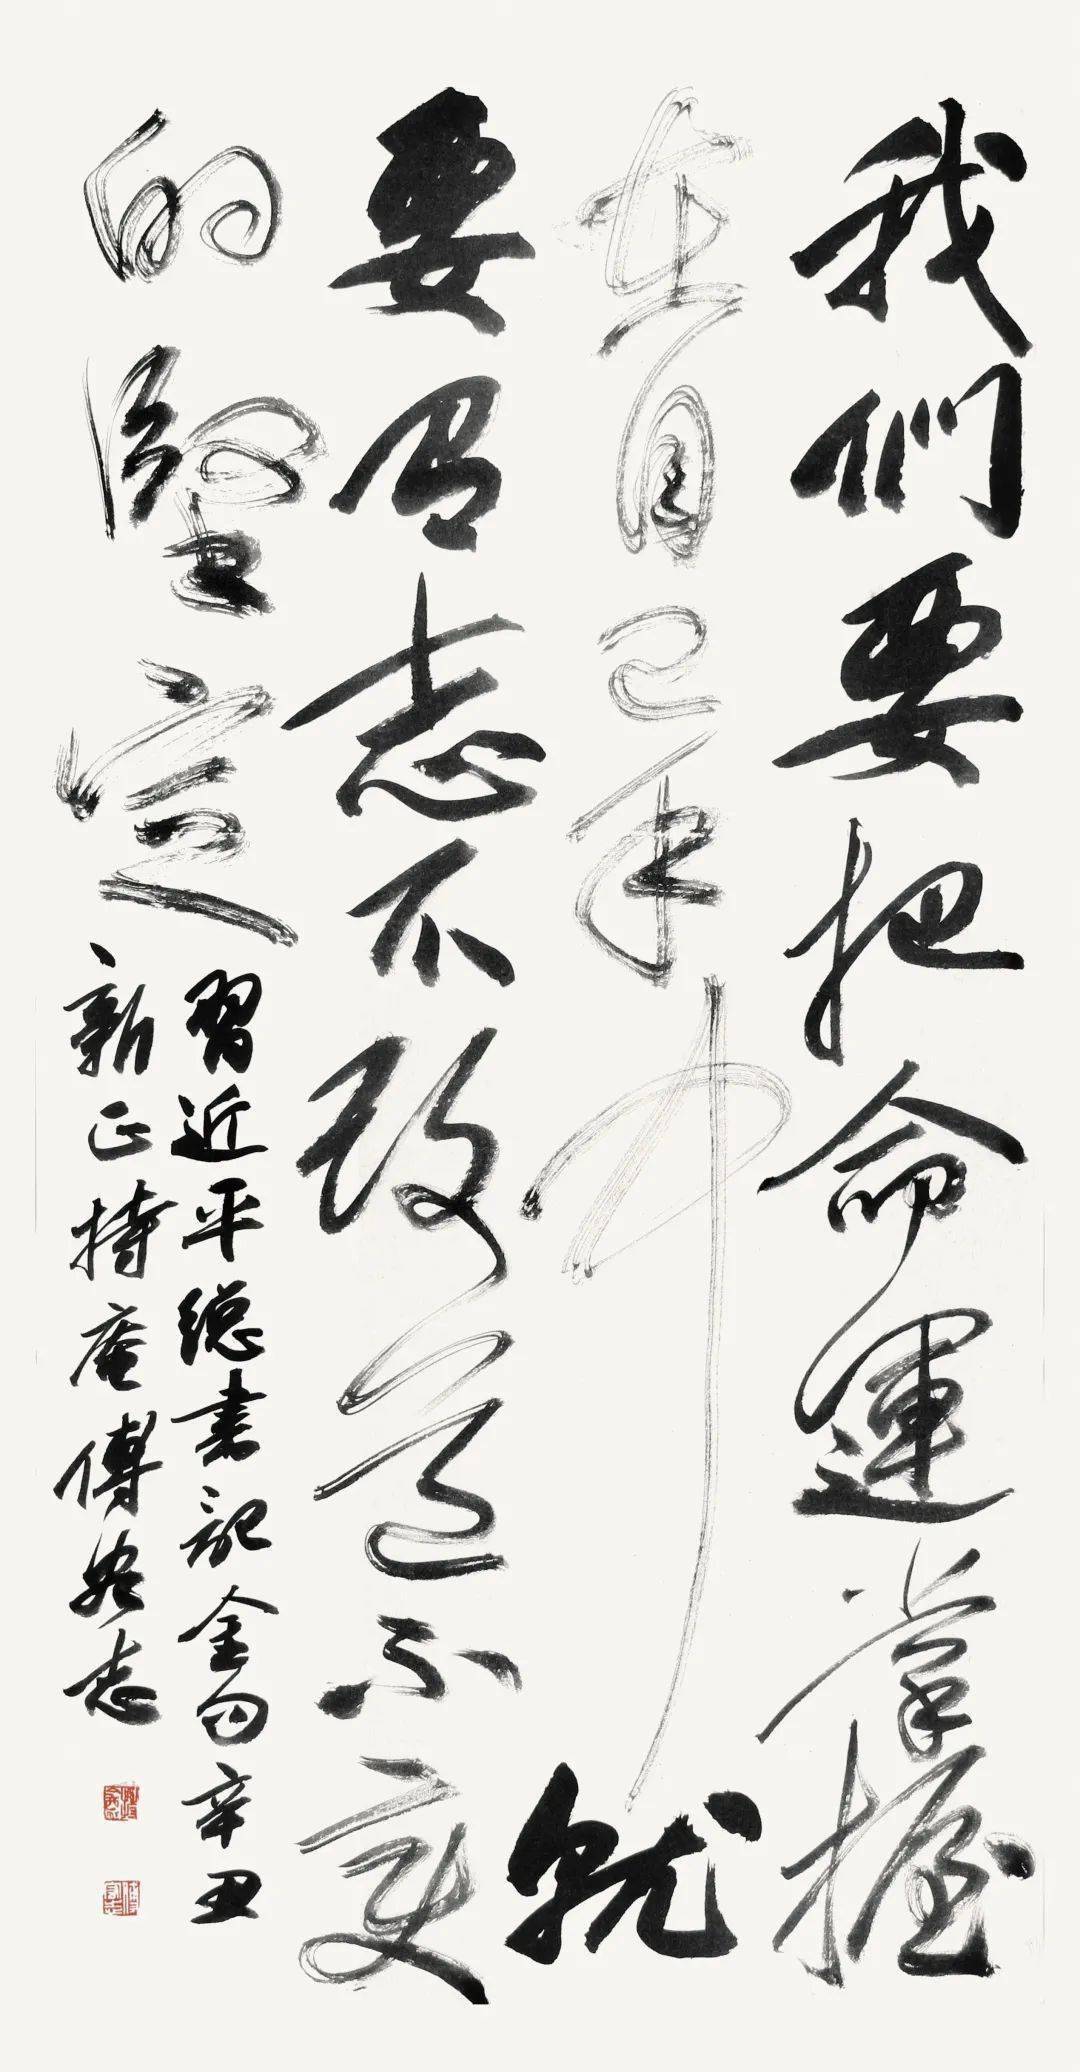 我們要把命運掌握
在自己手中就
要有志不改道不變
的堅定
習近平總書記金句辛丑
新正持庵傅如志